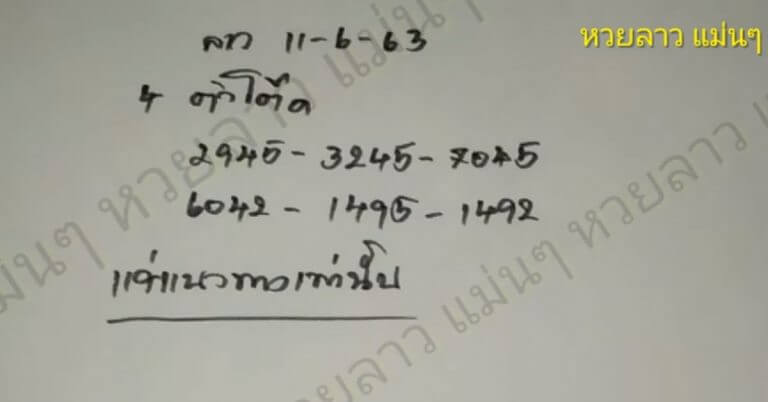 หวยลาว แม่นๆ
ลาว 11-6-63
4 ตัวโต๊ด
2945 - 3245 - 7045
6042 - 1495 - 1492
แค่แนวทางเท่านั้น
หวยลาว แม่นๆ
หวยลาว แม่นๆ